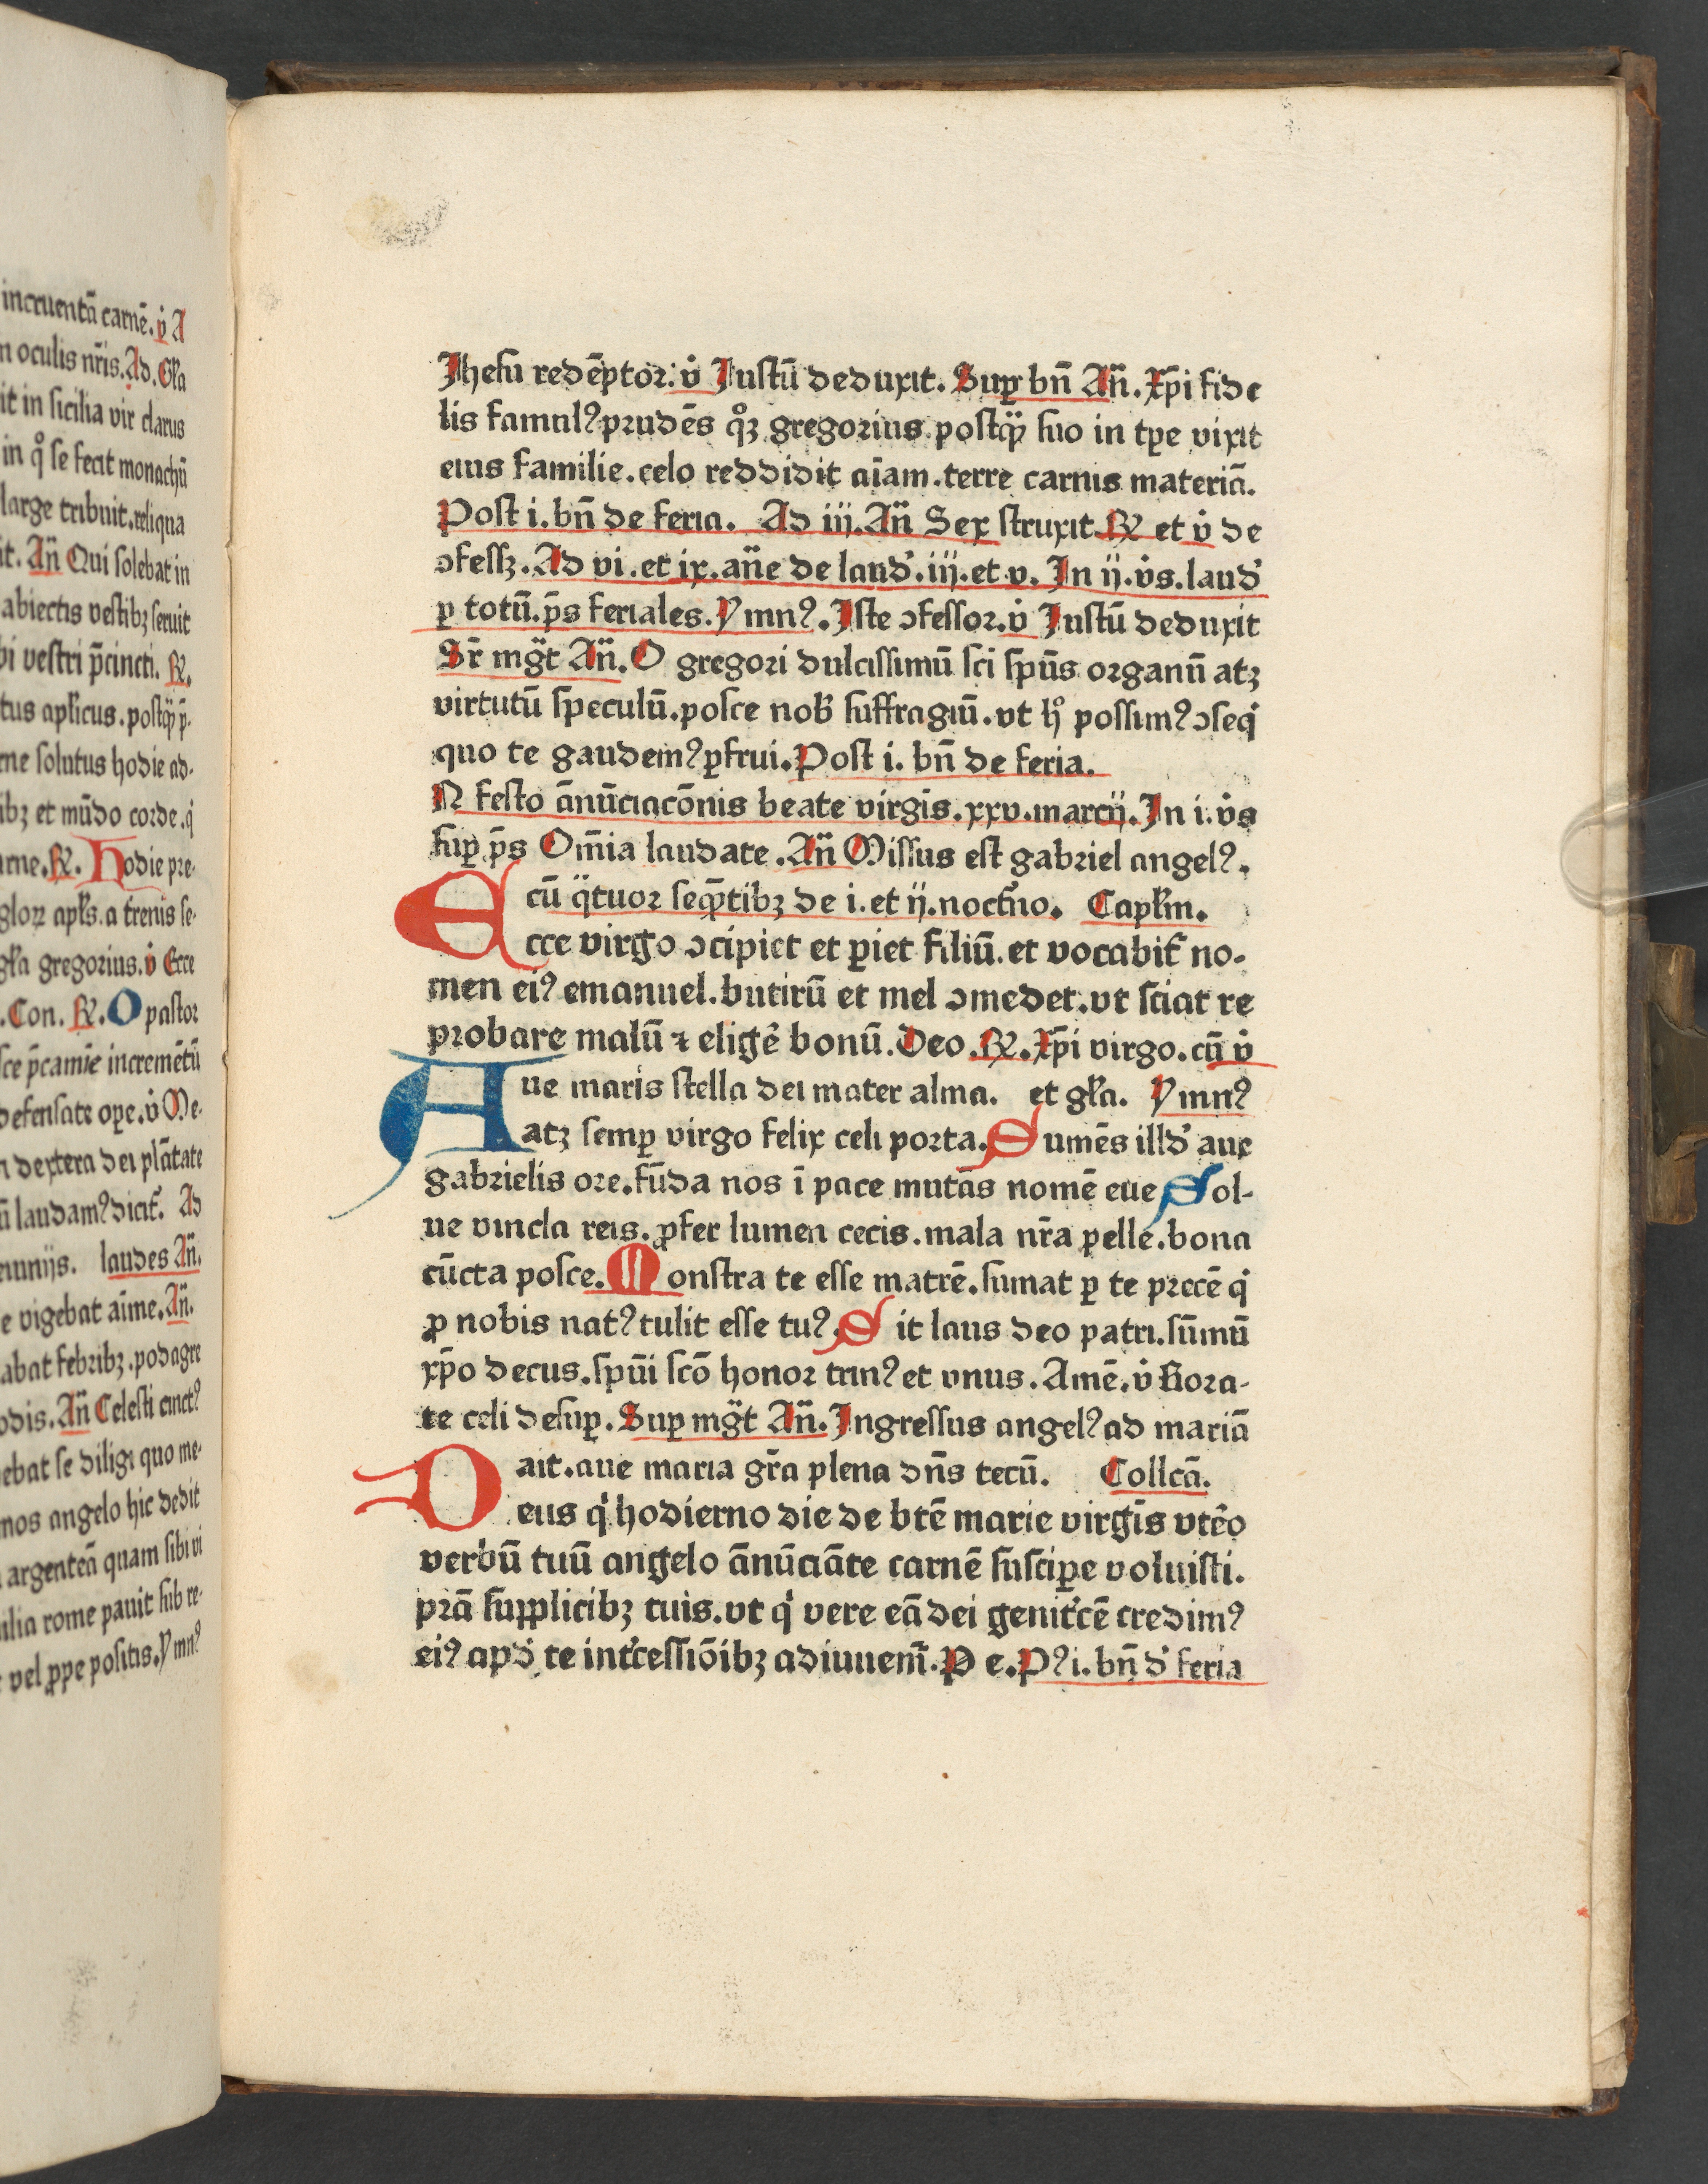 incruentā carnē. v̇ A
n oculis nr̄is. Ad. Gl̄a
it in sicilia vir clarus
in q̊ se fecit monachū
large tribuit. reliqua
it. Añ Qui solebat in
abiectis vestibꝫ seruit
bi vestri p̄cincti. ℟.
tus apl̄icus. postq̄ꝫ p̄-
me solutus hodie ad-
ibꝫ et mūdo corde. q̇
ame. ℟. Hodie pre-
gloꝝ apl̄s. a trenis se-
gl̄a gregorius. v̇ Ecce
. Con. ℟. O pastor
sce p̄camīe incremētū
defensate ope. v̇ Me-
n dextera dei plātate
ū laudamꝰ dicit̄. Ad
munijs. laudes Añ.
e vigebat aīme. Añ.
abat febribꝫ. podagre
odis. Añ Celesti cinctꝰ
ebat se diligi quo me-
mos angelo hic dedit
argenteā quam sibi vi
ilia rome pauit sub re-
vel ꝓpe positis. Ymnꝰ
Jhesu redēptor: v̇ Justū deduxit. Suꝑ bn̄ Añ. Xp̄i fide
lis famulꝰ prudēs q̊ꝫ gregorius. postq̄ꝫ suo in tꝑe vixit
eius familie. celo reddidit aīam. terre carnis materiā.
Post i. bn̄ de feria. Ad iij. Añ Sex struxit ℟ et v̇ de
ↄfessꝫ. Ad vi. et ix. an̄e de laud̕. iij. et v. In ij. v̇s. laud̕
ꝑ totū. p̄s feriales. Ymnꝰ. Iste ↄfessor. v̇ Justū deduxit
Sr̄ mg̈t Añ. O gregori dulcissimū sci sp̄us organū atꝫ
virtutū speculū. posce nob̕ suffragiū. vt h̊ possimꝰ ↄseq̇
quo te gaudemꝰ ꝑfrui. Post i. bn̄ de feria.
N festo ānūciacōnis beate virgīs. xxv. marcij. In i. v̇s
suꝑ p̄s Om̄ia laudate. Añ Missus est gabriel angelꝰ.
cū q̈tuor seq̄ntibꝫ de i. et ij. noct̕no. Capl̄m.
Ecce virgo ↄcipiet et ꝑiet filiū. et vocabit̄ no-
men eiꝰ emanuel. butirū et mel ↄmedet. vt sciat re
probare malū ⁊ eligē bonū. Deo. ℟. Xp̄i virgo. cū v̇
Aue maris stella dei mater alma. et gl̄a. Ymnꝰ
atꝫ semꝑ virgo felix celi porta. Sumēs illd̕ aue
gabrielis ore. fūda nos ī pace mutās nomē eue Sol-
ue vincla reis. ꝓfer lumen cecis. mala nr̄a pelle. bona
cūcta posce. Monstra te esse matrē. sumat ꝑ te precē q̇
ꝓ nobis natꝰ tulit esse tuꝰ. Sit laus deo patri. sūmū
xp̄o decus. sp̄ui scō honor trinꝰ et vnus. Amē. v̇ Rora-
te celi desuꝑ. Suꝑ mg̈t Añ. Ingressus angelꝰ ad mariā
ait. aue maria gr̄a plena dn̄s tecū. Collcā.
Deus q̇ hodierno die de btē marie virgīs vtēo
verbū tuū angelo ānūciāte carnē suscipe voluisti.
prā suꝓplicibꝫ tuis. vt q̇ vere eā dei genit̕cē credimꝰ
eiꝰ apd̕ te int̕cessiōibꝫ adiuuem̄. P e. Pꝰ i. bn̄ d̕ feria